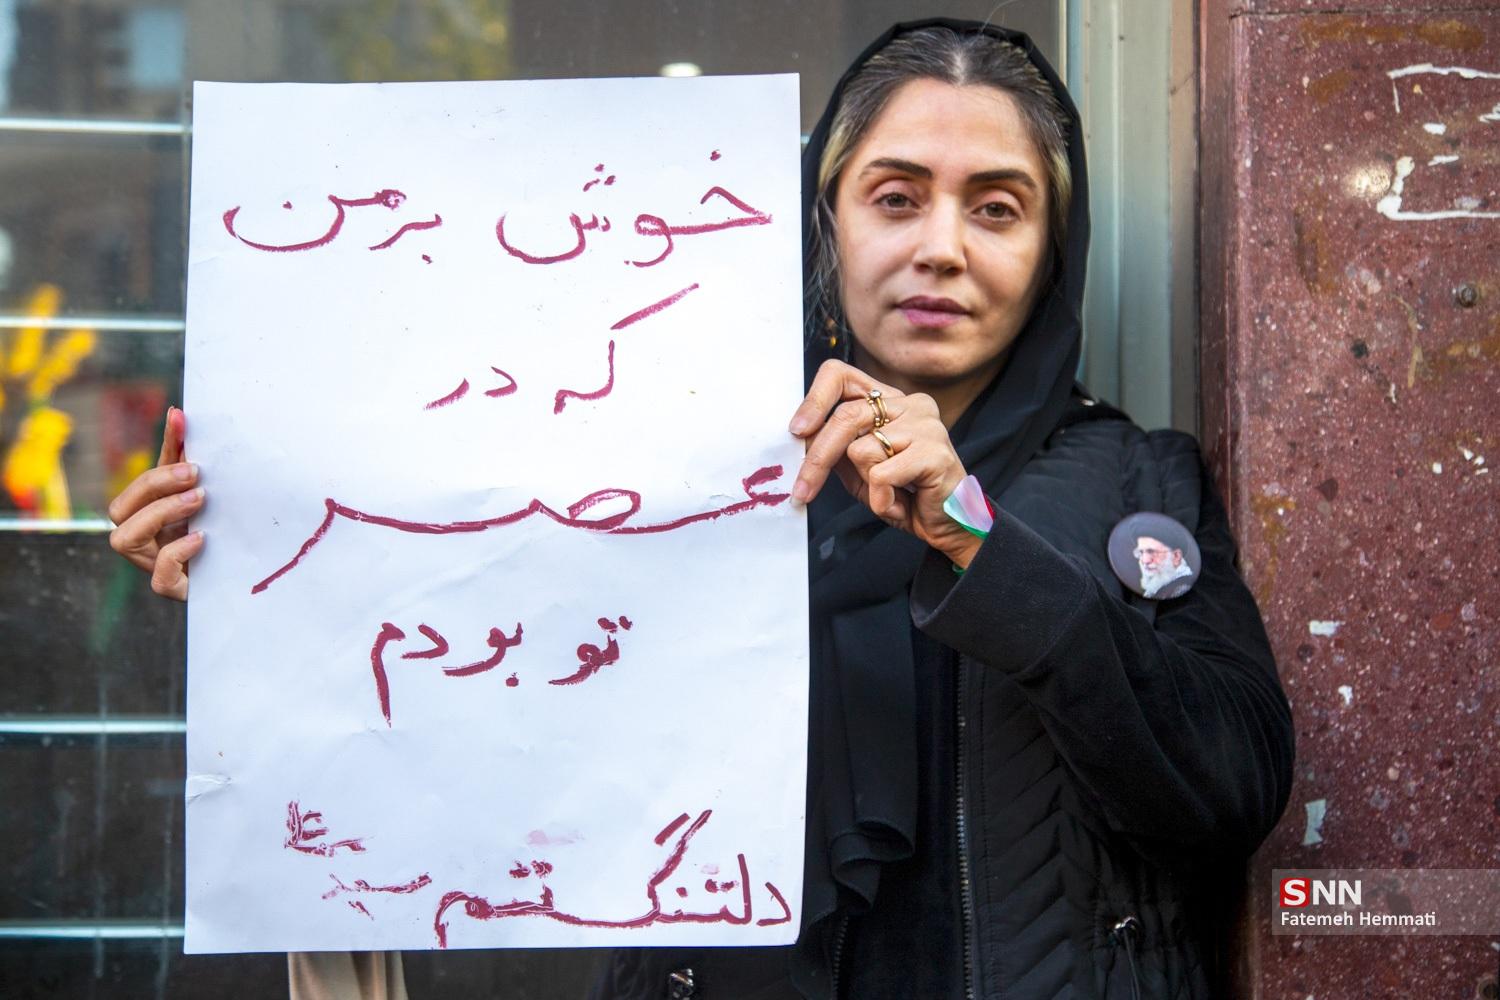 خوش برمن
که در
عصر
تو بودم
دلتنگتتم
SNN
Fatemeh Hemmati